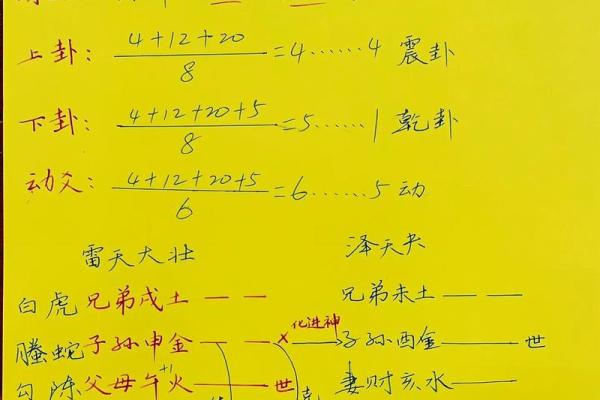 上卦： 4+12+20 / 8 =4……4 震卦
下卦： 4+12+20+5 / 8 =5……1 乾卦
动爻： 4+12+20+5 / 6 =6……5 动
雷天大壮 泽天夬
白虎 兄弟戌土 — — 兄弟未土 — —
化进神
螣蛇 子孙申金 — — × 子孙酉金 —— 世
+1
勾陈 父母午火 —— 世 克 妻财亥水 ——